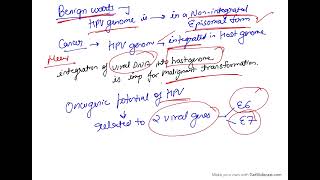 Benign warts →
HPV genome is → in a Non-integrated
Episomal form
Cancer → HPV genom → integrated in Host genome
Hence
integration of viral DNA into host genome
is imp for malignant transformation.
Oncogenic potential of HPV
↓
related to 2 viral genes
E6
E7
Make your own with GetVideoize.com